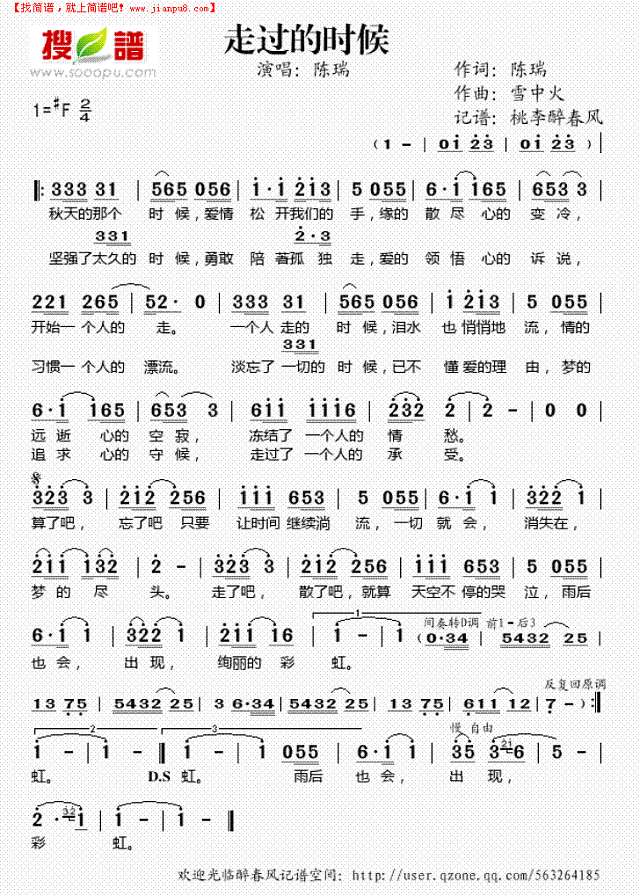 【找简谱，就上简谱吧！www.jianpu8.com】
搜谱
www.sooopu.com
走过的时候
演唱：陈瑞
作词：陈瑞
作曲：雪中火
记谱：桃李醉春风
1=#F 2/4
( 1 - | 0i 23 | 0i 23 ) |
333 31 | 565 056 | i·i 2i3 | 5 055 | 6·i i65 | 653 3 |
秋天的那个 时候，爱情 松开我们的 手，缘的 散尽心的 变冷，
331 2·3
坚强了太久的 时候，勇敢 陪著孤独 走，爱的 领悟心的 诉说，
221 265 | 52· 0 | 333 31 | 565 056 | i 2i3 | 5 055 |
开始一个人的 走。 一个人走的 时候，泪水 也悄悄地 流，情的
331
习惯一个人的 漂流。 淡忘了一切的 时候，已不 懂爱的理 由，梦的
6·i i65 | 653 3 | 6ii iii6 | 232 2 | 2 - | 0 0 |
远逝 心的 空寂， 冻结了 一个人的 情 愁。
追求 心的 守候， 走过了 一个人的 承 受。
323 3 | 2i2 256 | iii 653 | 5 055 | 6·i i | 322 i |
算了吧， 忘了吧 只要 让时间 继续淌 流，一切 就会， 消失在，
2ii i32 | 2 - | 323 3 | 2i2 256 | iii 653 | 5 055 |
梦的 尽 头。 走了吧， 散了吧，就算 天空不 停的哭 泣，雨后
1
间奏转D调 前1－后3
6·i i | 322 i | 2ii i6 | i - | i (0·34 | 5432 25 |
也会， 出现， 绚丽的彩 虹。
反复回原调
13 75 | 5432 25 | 3 6·34 | 5432 25 | 13 75 | 611 12 | 7 - ) :‖
2 3 慢 自由
i - | i - ‖ i - | i 055 | 6·i i | 35 3-6 | 5 - |
虹。 D.S 虹。 雨后 也会， 出现，
2 · i | i - | i 0 ‖
彩 虹。
欢迎光临醉春风记谱空间：http://user.qzone.qq.com/563264185